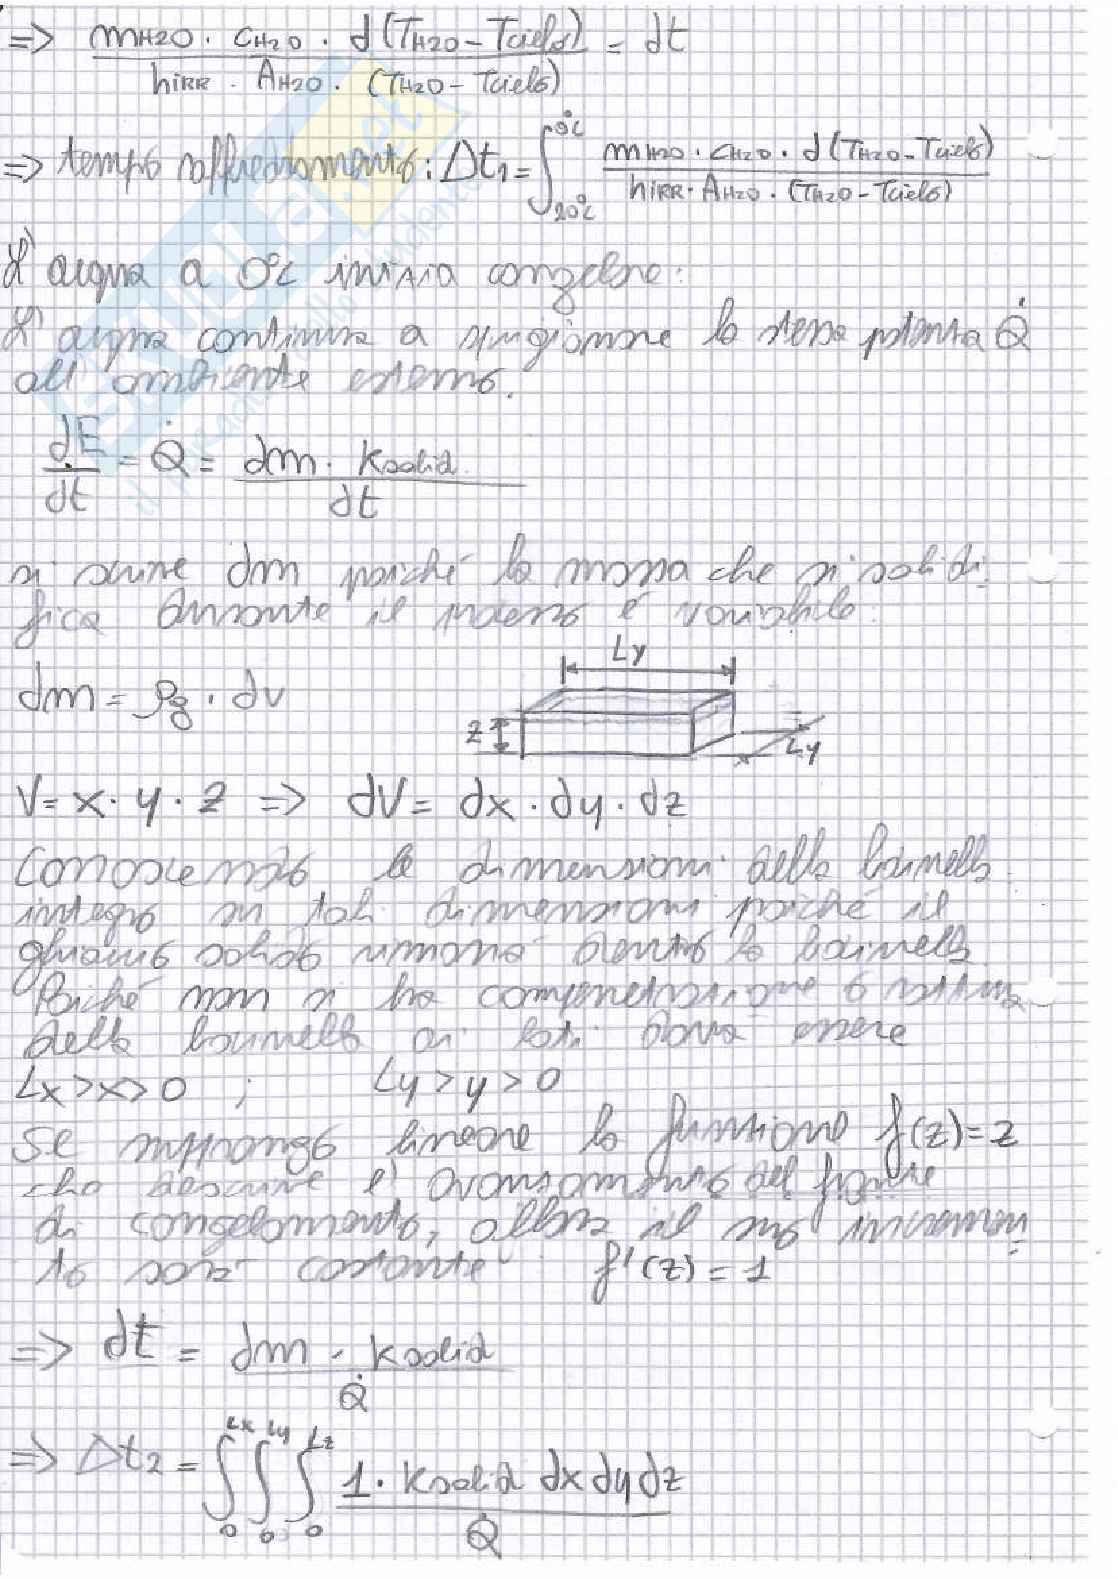 => mH2O · cH2O · d(TH2O - Tcielo) / hirr · AH2O · (TH2O - Tcielo) = dt
=> tempo raffreddamento: Δt1 = ∫ 20°C 0°C mH2O · cH2O · d(TH2O - Tcielo) / hirr · AH2O · (TH2O - Tcielo)
L'acqua a 0°C inizia congelare:
L'acqua continua a sprigionare la stessa potenza Q̇
all'ambiente esterno.
dE/dt = Q̇ = dm · ksolid / dt
si scrive dm poiché la massa che si solidi
fica durante il processo è variabile.
Ly
dm = ρg · dv
z
Ly
V = x · y · z => dV = dx · dy · dz
Conoscendo le dimensioni della bacinella
integro su tali dimensioni poiché il
ghiaccio solido rimane dentro la bacinella.
Poiché non si ha compenetrazione o rottura
della bacinella ai lati dovrà essere
Lx > x > 0 ; Ly > y > 0
Se suppongo lineare la funzione f(z) = z
che descrive l'avanzamento del fronte
di congelamento, allora il suo incremen
to sarà costante f'(z) = 1
=> dt = dm · ksolid / Q̇
=> Δt2 = ∫ 0 Lx ∫ 0 Ly ∫ 0 Lz 1 · ksolid dx dy dz / Q̇